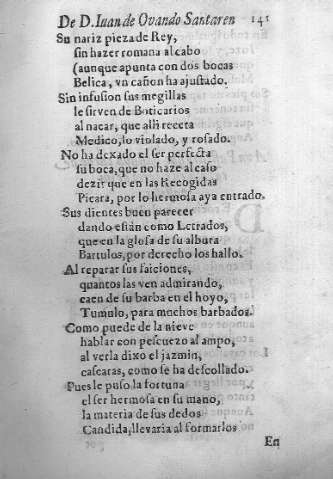 De D. Iuan de Ovando Santaren 141
Su nariz pieza de Rey,
sin hazer romana al cabo
(aunque apunta con dos bocas
Belica, vn cañon ha ajustado.
Sin infusion sus megillas
le sirven de Boticarios
al nacar, que alli receta
Medico, lo violado, y rosado.
No ha dexado el ser perfecta
su boca, que no haze al caso
dezir que en las Recogidas
Picara, por lo hermosa aya entrado.
Sus dientes buen parecer
dando estàn como Letrados,
que en la glosa de su albura
Bartulos, por derecho los hallo.
Al reparar sus faiciones,
quantos las ven admirando,
caen de su barba en el hoyo,
Tumulo, para muchos barbados.
Como puede de la nieve
hablar con pescuezo al ampo,
al verla dixo el jazmin,
cascaras, como se ha descollado.
Pues le puso la fortuna
el ser hermosa en su mano,
la materia de sus dedos
Candida, llevaria al formarlos
En